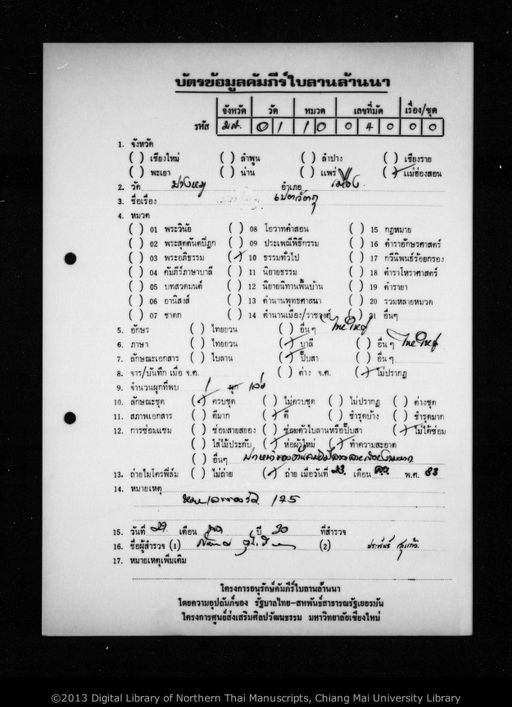 บัตรข้อมูลคัมภีร์ใบลานล้านนา
จังหวัด วัด หมวด เลขที่มัด เรื่อง/ชุด
รหัส ม.ส. 0 1 1 0 0 4 0 0 0
1. จังหวัด
( ) เชียงใหม่ ( ) ลำพูน ( ) ลำปาง ( ) เชียงราย
( ) พะเยา ( ) น่าน ( ) แพร่ (✓) แม่ฮ่องสอน
2. วัด อำเภอ เมือง
3. ชื่อเรื่อง
4. หมวด
( ) 01 พระวินัย ( ) 08 โอวาทคำสอน ( ) 15 กฎหมาย
( ) 02 พระสุตตันตปิฎก ( ) 09 ประเพณีพิธีกรรม ( ) 16 ตำราอักษรศาสตร์
( ) 03 พระอภิธรรม (✓) 10 ธรรมทั่วไป ( ) 17 กวีนิพนธ์ร้อยกรอง
( ) 04 คัมภีร์ภาษาบาลี ( ) 11 นิยายธรรม ( ) 18 ตำราโหราศาสตร์
( ) 05 บทสวดมนต์ ( ) 12 นิยายนิทานพื้นบ้าน ( ) 19 ตำรายา
( ) 06 อานิสงส์ ( ) 13 ตำนานพุทธศาสนา ( ) 20 รวมหลายหมวด
( ) 07 ชาดก ( ) 14 ตำนานเมือง/ราชวงศ์ ( ) 21 อื่นๆ
5. อักษร ( ) ไทยยวน ( ) อื่นๆ ไทใหญ่
6. ภาษา ( ) ไทยยวน (✓) บาลี ( ) อื่นๆ ไทใหญ่
7. ลักษณะเอกสาร ( ) ใบลาน (✓) ปั๊บสา ( ) อื่นๆ
8. จาร/บันทึก เมื่อ จ.ศ. ( ) ต่าง จ.ศ. (✓) ไม่ปรากฏ
9. จำนวนผูกที่พบ 1 ผูก
10. ลักษณะชุด (✓) ครบชุด ( ) ไม่ครบชุด ( ) ไม่ปรากฏ ( ) ต่างชุด
11. สภาพเอกสาร ( ) ดีมาก (✓) ดี ( ) ชำรุดบ้าง ( ) ชำรุดมาก
12. การซ่อมแซม ( ) ซ่อมสายสยอง ( ) ซ่อมตัวใบลานหรือปั๊บสา (✓) ไม่ได้ซ่อม
( ) ใส่ไม้ประกับ (✓) ห่อผ้าใหม่ (✓) ทำความสะอาด
( ) อื่นๆ
13. ถ่ายไมโครฟิล์ม ( ) ไม่ถ่าย (✓) ถ่าย เมื่อวันที่ เดือน พ.ศ.
14. หมายเหตุ
175
15. วันที่ 29 เดือน ปี 30 ที่สำรวจ
16. ชื่อผู้สำรวจ (1) (2)
17. หมายเหตุเพิ่มเติม
โครงการอนุรักษ์คัมภีร์ใบลานล้านนา
โดยความอุปถัมภ์ของ รัฐบาลไทย-สหพันธ์สาธารณรัฐเยอรมัน
โครงการศูนย์ส่งเสริมศิลปวัฒนธรรม มหาวิทยาลัยเชียงใหม่
©2013 Digital Library of Northern Thai Manuscripts, Chiang Mai University Library